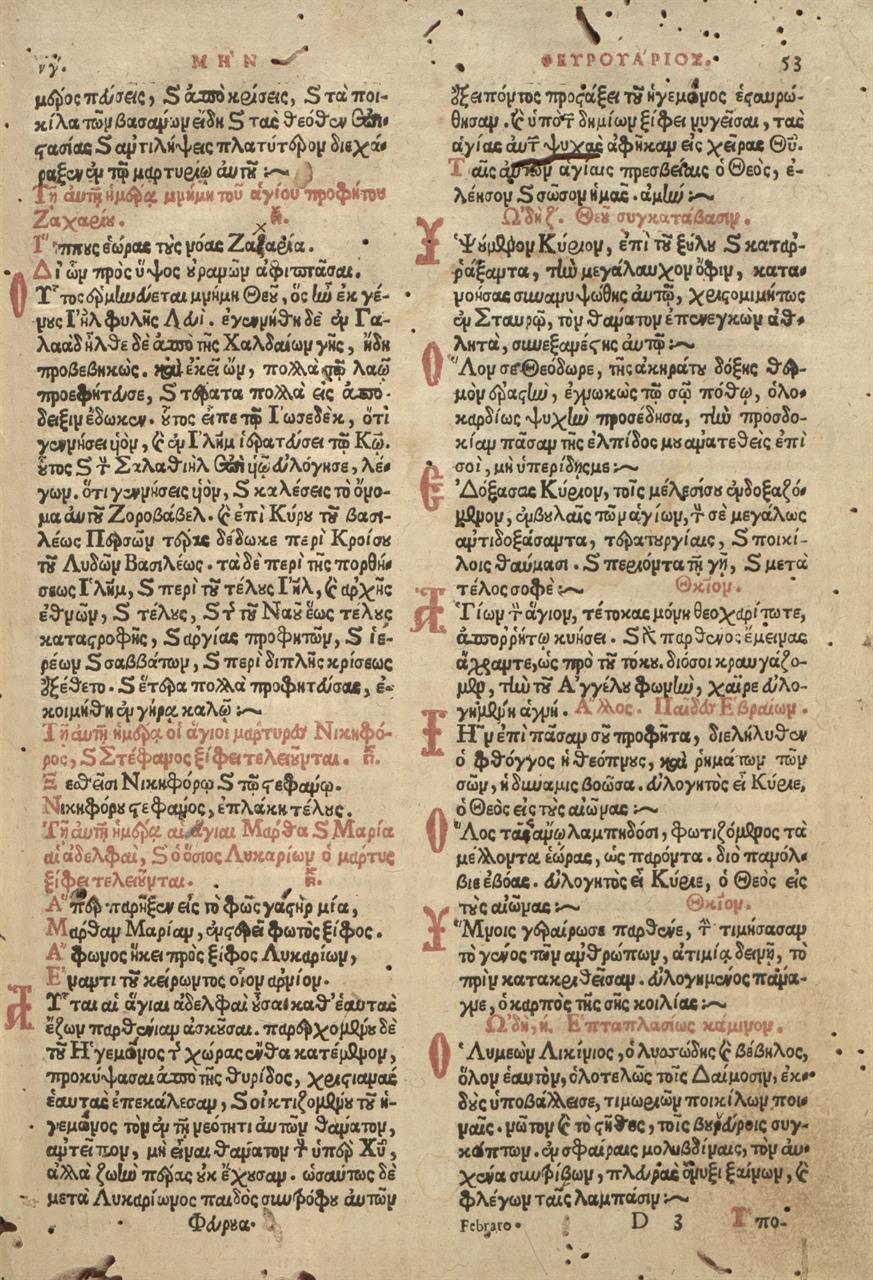 νγ. ΜΗ῍Ν
μέρος παύσεις, καὶ ἀποκρίσεις, καὶ τὰ ποι-
κίλα τῶν βασάνων εἴδη καὶ τὰς θεόθεν ἐπι-
στασίας καὶ ἀντιλήψεις πλατύτερον διεχά-
ραξεν ἐν τῷ μαρτυρίῳ αὐτοῦ :~
Τῇ αὐτῇ ἡμέρᾳ μνήμη τοῦ ἁγίου προφήτου
Ζαχαρίου.
Ἵππους ἑώρας τοὺς νόας Ζαχαρία.
Δι ὧν πρὸς ὕψος οὐρανῶν ἀφίπτασαι.
Οὗτος ἑρμηνεύεται μνήμη Θεοῦ, ὃς ἦν ἐκ γέ-
νους Ἰηλ φυλῆς Λευί. ἐγεννήθη δὲ ἐν Γα-
λαὰδ ἦλθε δὲ ἀπὸ τῆς Χαλδαίων γῆς, ἤδη
προβεβηκώς. καὶ ἐκεῖ ὢν, πολλὰ τῷ λαῷ
προεφήτευσε, καὶ τέρατα πολλὰ εἰς ἀπό-
δειξιν ἔδωκεν. οὗτος εἶπε τῷ Ἰωσεδὲκ, ὅτι
γεννήσει υἱὸν, καὶ ἐν Ἰλῆμ ἱερατεύσει τῷ Κῷ.
οὗτος καὶ τὸν Σαλαθιὴλ ἐπὶ υἱῷ εὐλόγησε, λέ-
γων. ὅτι γεννήσεις υἱὸν, καὶ καλέσεις τὸ ὄνο-
μα αὐτοῦ Ζοροβάβελ. καὶ ἐπὶ Κύρου τοῦ βασι-
λέως Περσῶν τέρας δέδωκε περὶ Κροίσου
τοῦ Λυδῶν Βασιλέως. τὰ δὲ περὶ τῆς πορθή-
σεως Ἰλῆμ, καὶ περὶ τοῦ τέλους Ἰηλ, καὶ ἀρχῆς
ἐθνῶν, καὶ τέλους, καὶ τὰ τοῦ Ναοῦ ἕως τέλους
καταστροφῆς, καὶ ἀργίας προφητῶν, καὶ ἱε-
ρέων καὶ σαββάτων, καὶ περὶ διπλῆς κρίσεως
ἐξέθετο. καὶ ἕτερα πολλὰ προφητεύσας, ἐ-
κοιμήθη ἐν γήρᾳ καλῷ :~
Τῇ αὐτῇ ἡμέρᾳ οἱ ἅγιοι μάρτυρες Νικηφό-
ρος, καὶ Στέφανος ξίφει τελειοῦνται.
Ξεσθεῖσι Νικηφόρῳ καὶ τῷ στεφάνῳ.
Νικηφόρου στεφάνος, ἐπλάκη τέλους.
Τῇ αὐτῇ ἡμέρᾳ αἱ ἅγιαι Μάρθα καὶ Μαρία
αἱ ἀδελφαὶ, καὶ ὁ ὅσιος Λυκαρίων ὁ μάρτυς
ξίφει τελειοῦνται.
Ἅπερ παρῆξεν εἰς τὸ φῶς γαστὴρ μία,
Μάρθαν Μαρίαν, ἐνστερεῖ φωτὸς ξίφος.
Ἄφωνος ἥκει πρὸς ξίφος Λυκαρίων,
Ἐναντι τοῦ κείροντος οἷον ἀρνίον.
Αὗται αἱ ἅγιαι ἀδελφαὶ οὖσαι καθ’ ἑαυτὰς
ἔζων παρθενίαν ἀσκοῦσαι. παρερχομένου δὲ
τοῦ Ἡγεμόνος τῆς χώρας ἔνθα κατέμενον,
προκύψασαι ἀπὸ τῆς θυρίδος, χριστιανὰς
ἑαυτὰς ἐπεκάλεσαν, καὶ οἰκτιζομένου τοῦ ἡ-
γεμόνος τὸν ἐν τῇ νεότητι αὐτῶν θάνατον,
ἀντεῖπον, μὴ εἶναι θάνατον τὸν ὑπὲρ Χῦ,
ἀλλὰ ζωὴν πέρας οὐκ ἔχουσαν. ὡσαύτως δὲ
μετὰ Λυκαρίωνος παιδὸς συντρόφου αὐτῶν
Φάυρυα.
ΦΕΥΡΟΥΑ΄ΡΙΟΣ. 53
ἐξειπόντος προστάξει τοῦ ἡγεμόνος ἐσταυρώ-
θησαν. καὶ ὑπὸ τῶν δημίων ξίφει νυγεῖσαι, τὰς
ἁγίας αὐτῶν ψυχὰς ἀφῆκαν εἰς χεῖρας Θῦ.
Ταῖς αὐτῶν ἁγίαις πρεσβείαις ὁ Θεὸς, ἐ-
λέησον καὶ σῶσον ἡμᾶς. ἀμήν :~
Ὠδὴ ζ. Θεοῦ συγκατάβασιν.
Ὑψούμενον Κύριον, ἐπὶ τοῦ ξύλου καὶ καταρ-
ράξαντα, τὴν μεγάλαυχον ὄφιν, κατα-
νοήσας συνανυψώθης αὐτῷ, χριστομιμήτως
ἐν Σταυρῷ, τὸν θάνατον ἐπενεγκὼν ἀθ-
λητὰ, συνεξανέστης αὐτῷ :~
Ὅλον σε Θεόδωρε, τῆς ἀκηράτου δόξης θερ-
μὸν ἐραστὴν, ἐγνωκὼς τῷ σῷ πόθῳ, ὁλο-
καρδίως ψυχὴν προσέδησα, τὴν προσδο-
κίαν πᾶσαν τῆς ἐλπίδος μου ἀνατεθεὶς ἐπὶ
σοὶ, μὴ ὑπερίδῃς με :~
Ἐδόξασας Κύριον, τοῖς μέλεσί σου ἐνδοξαζό-
μενον, ἐν βουλαῖς τῶν ἁγίων, τὸν σὲ μεγάλως
ἀντιδοξάσαντα, τερατουργίαις, καὶ ποικί-
λοις θαύμασι. καὶ περιόντα τῇ γῇ, καὶ μετὰ
τέλος σοφέ :~ Θκίον.
Ἁγίων τὸν ἅγιον, τέτοκας μόνη θεοχαρίτωτε,
ἀπορρήτῳ κυήσει. καὶ παρθένος ἔμεινας
ἄχραντε, ὡς πρὸ τοῦ τόκου. διό σοι κραυγάζο-
μεν, τὴν τοῦ Ἀγγέλου φωνὴν, χαῖρε εὐλο-
γημένη ἁγνή. Ἄλλος. Παῖδες Ἑβραίων.
Ἦν ἐπὶ πᾶσαν σοῦ προφῆτα, διεληλυθὼν
ὁ φθόγγος ἡ θεόπνους, καὶ ῥημάτων τῶν
σῶν, ἡ δύναμις βοῶσα. εὐλογητὸς εἶ Κύριε,
ὁ Θεὸς εἰς τοὺς αἰῶνας :~
Ὅλος ταῖς ἄνω λαμπηδόσι, φωτιζόμενος τὰ
μέλλοντα ἑώρας, ὡς παρόντα. διὸ πανόλ-
βιε ἐβόας. εὐλογητὸς εἶ Κύριε, ὁ Θεὸς εἰς
τοὺς αἰῶνας :~ Θκίον.
Ὕμνοις γεραίρωσε παρθένε, τὴν τιμήσασαν
τὸ γένος τῶν ἀνθρώπων, ἀτιμίᾳ δεινῇ, τὸ
πρὶν κατακριθεῖσαν. εὐλογημένος πάνα-
γνε, ὁ καρπὸς τῆς σῆς κοιλίας :~
Ὠδὴ, η. Ἑπταπλασίως κάμινον.
Ὁ Λυμεὼν Λικίνιος, ὁ λυσσώδης καὶ βέβηλος,
ὅλον ἑαυτὸν, ὁλοτελῶς τοῖς Δαίμοσιν, ἐκ-
δοὺς ὑποβάλλει σε, τιμωριῶν ποικίλων ποι-
ναῖς. νῶτον καὶ τὸ στῆθος, τοῖς βουνεύροις συγ-
κόπτων. ἐν σφαίραις μολυβδίναις, τὸν αὐ-
χένα συντρίβων, πλευρὰς ὄνυξι ξαίνων, καὶ
φλέγων ταῖς λαμπάσιν :~
Febraro. D 3 Ὑπο-